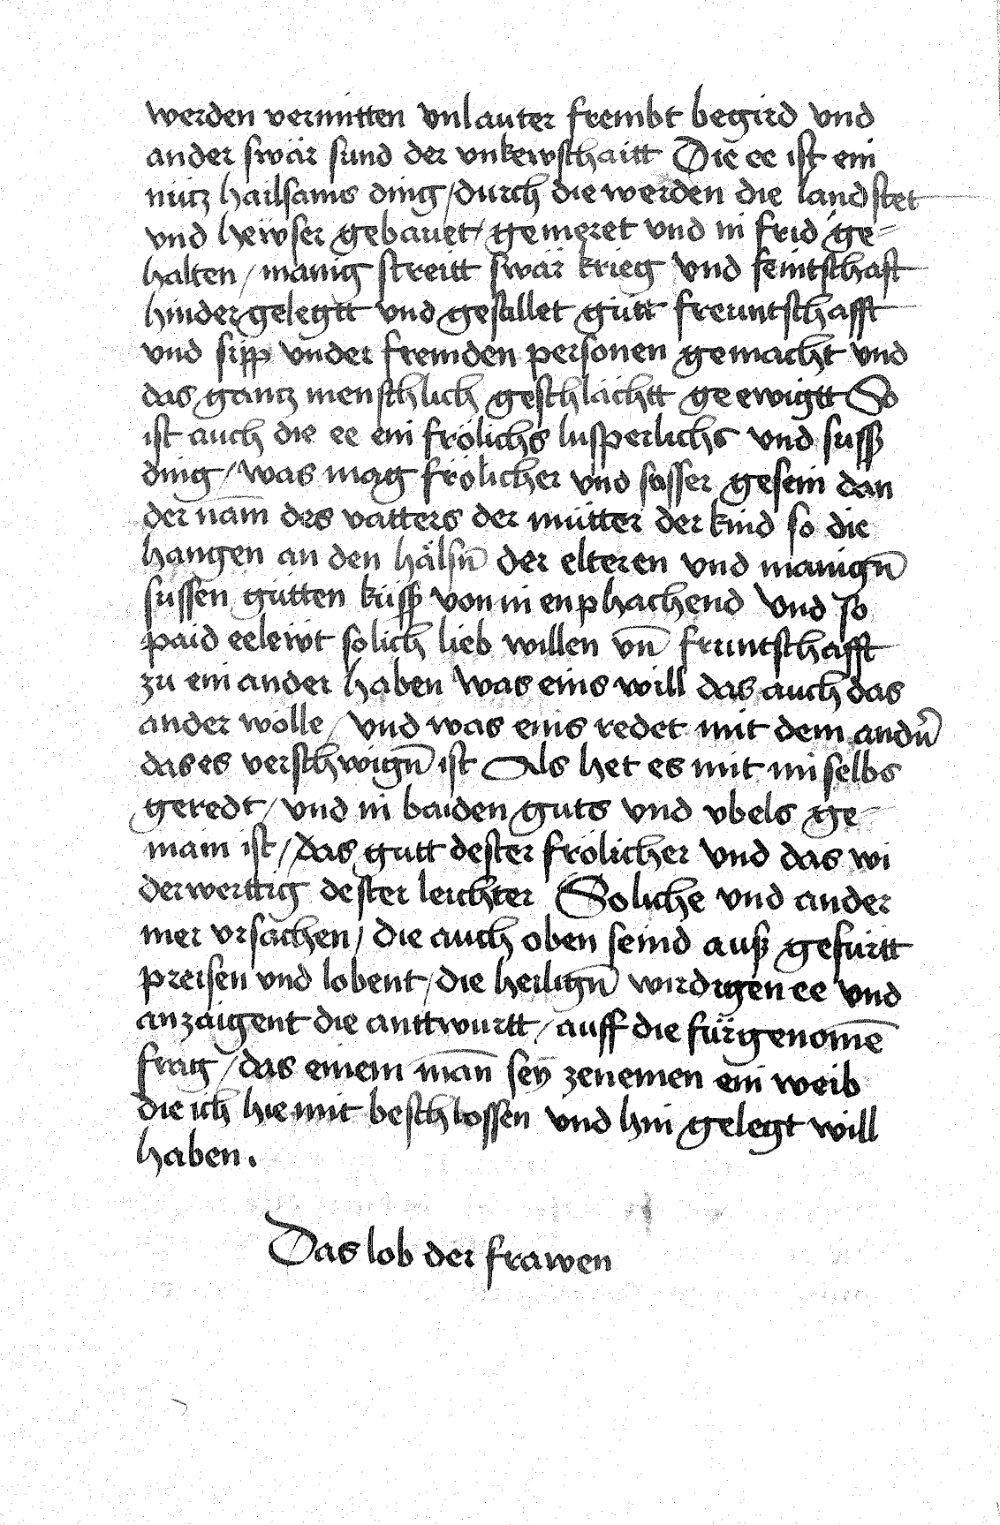 werden vermitten vnlauter frembt begird vnd
ander swär sund der vnkewschaitt Die ee ist ein
nütz hailsams ding / durch die werden die land stet
vnd hewser gebauet / gemeret vnd in frid ge=
halten / manig streitt swär krieg vnd feintschaft
hinder gelegtt vnd gestillet gutt freuntschafft
vnd sipp vnder fremden personen gemacht vnd
das gantz menschlich geschlächtt geewigtt So
ist auch die ee ein frölichs lusperlichs vnd suss
ding / was mag frölicher vnd süsser gesein dan
der nam̅ des vatters der mutter der kind so die
hangen an den hälsn̅ der elteren vnd manign̅
sussen gutten küss von in enphachend Vnd so
paid eelewt solich lieb willen vn̅ fruntschafft
zu ein ander haben Was eins will das auch das
ander wolle / Vnd was eins redet mit dem andn̅
das es verschwign̅ ist Als het es mit im selbs
geredt / vnd in baiden guts vnd vbels ge=
main ist / das gutt dester frölicher vnd das wi
derwerttig dester leichter Soliche vnd ander
mer vrsachen / die auch oben seind auß gefurtt
preisen vnd lobent / die heilign̅ wirdigen ee vnd
anzaigent die anttwurtt / auff die fürgenome̅
frag / das einem man̅ sey zenemen ein weib
die ich hie mit beschlossen vnd hin gelegt will
haben.
Das lob der frawen